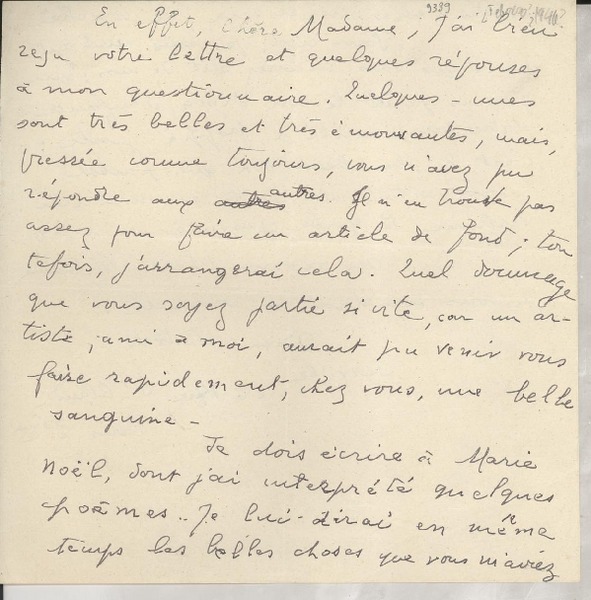 9339 [Février? 1946?]
En effet, chère Madame, j'ai bien
reçu votre lettre et quelques réponses
à mon questionnaire. Quelques-unes
sont très belles et très émouvantes, mais,
pressée comme toujours, vous n'avez pu
répondre aux autres autres. Je n'en trouve pas
assez pour faire un article de fond; tou
tefois, j'arrangerai cela. Quel dommage
que vous soyez partie si vite, car un ar-
tiste, ami à moi, aurait pu venir vous
faire rapidement, chez vous, une belle
sanguine -
Je dois écrire à Marie
Noël, dont j'ai interprété quelques
poèmes.. Je lui dirai en même
temps les belles choses que vous m'aviez